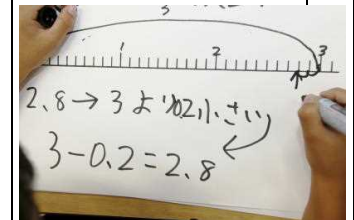 1 2 3
2.8→3より0.2小さい
3-0.2=2.8